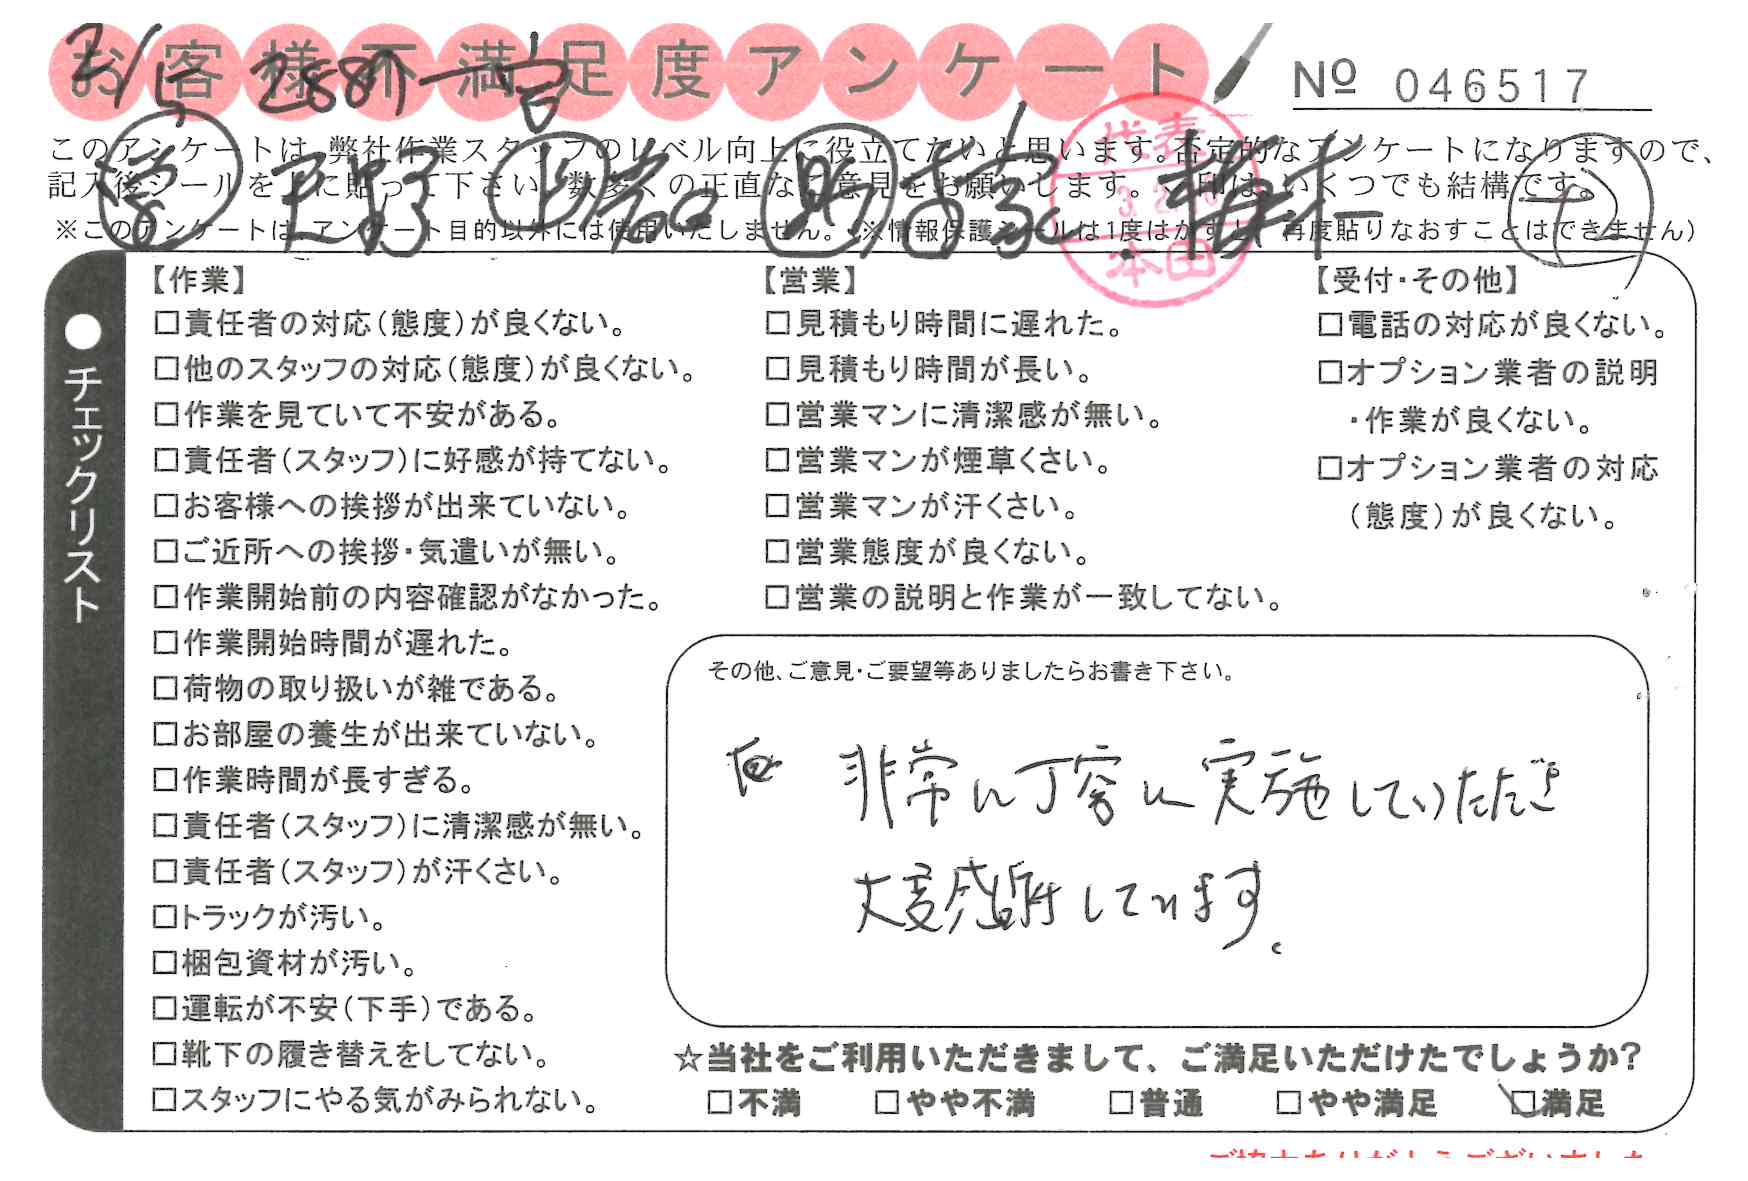 お客様不満足度アンケート
№ 046517
このアンケートは、弊社作業スタッフのレベル向上に役立てたいと思います。否定的なアンケートになりますので、
記入後シールを上に貼って下さい。数多くの正直なご意見をお願いします。✓印は、いくつでも結構です。
※このアンケートは、アンケート目的以外には使用いたしません。(※情報保護シールは1度はがすと、再度貼りなおすことはできません)
代表
本田
●チェックリスト
【作業】
□責任者の対応(態度)が良くない。
□他のスタッフの対応(態度)が良くない。
□作業を見ていて不安がある。
□責任者(スタッフ)に好感が持てない。
□お客様への挨拶が出来ていない。
□ご近所への挨拶・気遣いが無い。
□作業開始前の内容確認がなかった。
□作業開始時間が遅れた。
□荷物の取り扱いが雑である。
□お部屋の養生が出来ていない。
□作業時間が長すぎる。
□責任者(スタッフ)に清潔感が無い。
□責任者(スタッフ)が汗くさい。
□トラックが汚い。
□梱包資材が汚い。
□運転が不安(下手)である。
□靴下の履き替えをしてない。
□スタッフにやる気がみられない。
【営業】
□見積もり時間に遅れた。
□見積もり時間が長い。
□営業マンに清潔感が無い。
□営業マンが煙草くさい。
□営業マンが汗くさい。
□営業態度が良くない。
□営業の説明と作業が一致してない。
【受付・その他】
□電話の対応が良くない。
□オプション業者の説明
・作業が良くない。
□オプション業者の対応
(態度)が良くない。
その他、ご意見・ご要望等ありましたらお書き下さい。
非常に丁寧に実施していただき
大変感謝しています。
☆当社をご利用いただきまして、ご満足いただけたでしょうか?
□不満 □やや不満 □普通 □やや満足 □満足
ご協力ありがとうございました